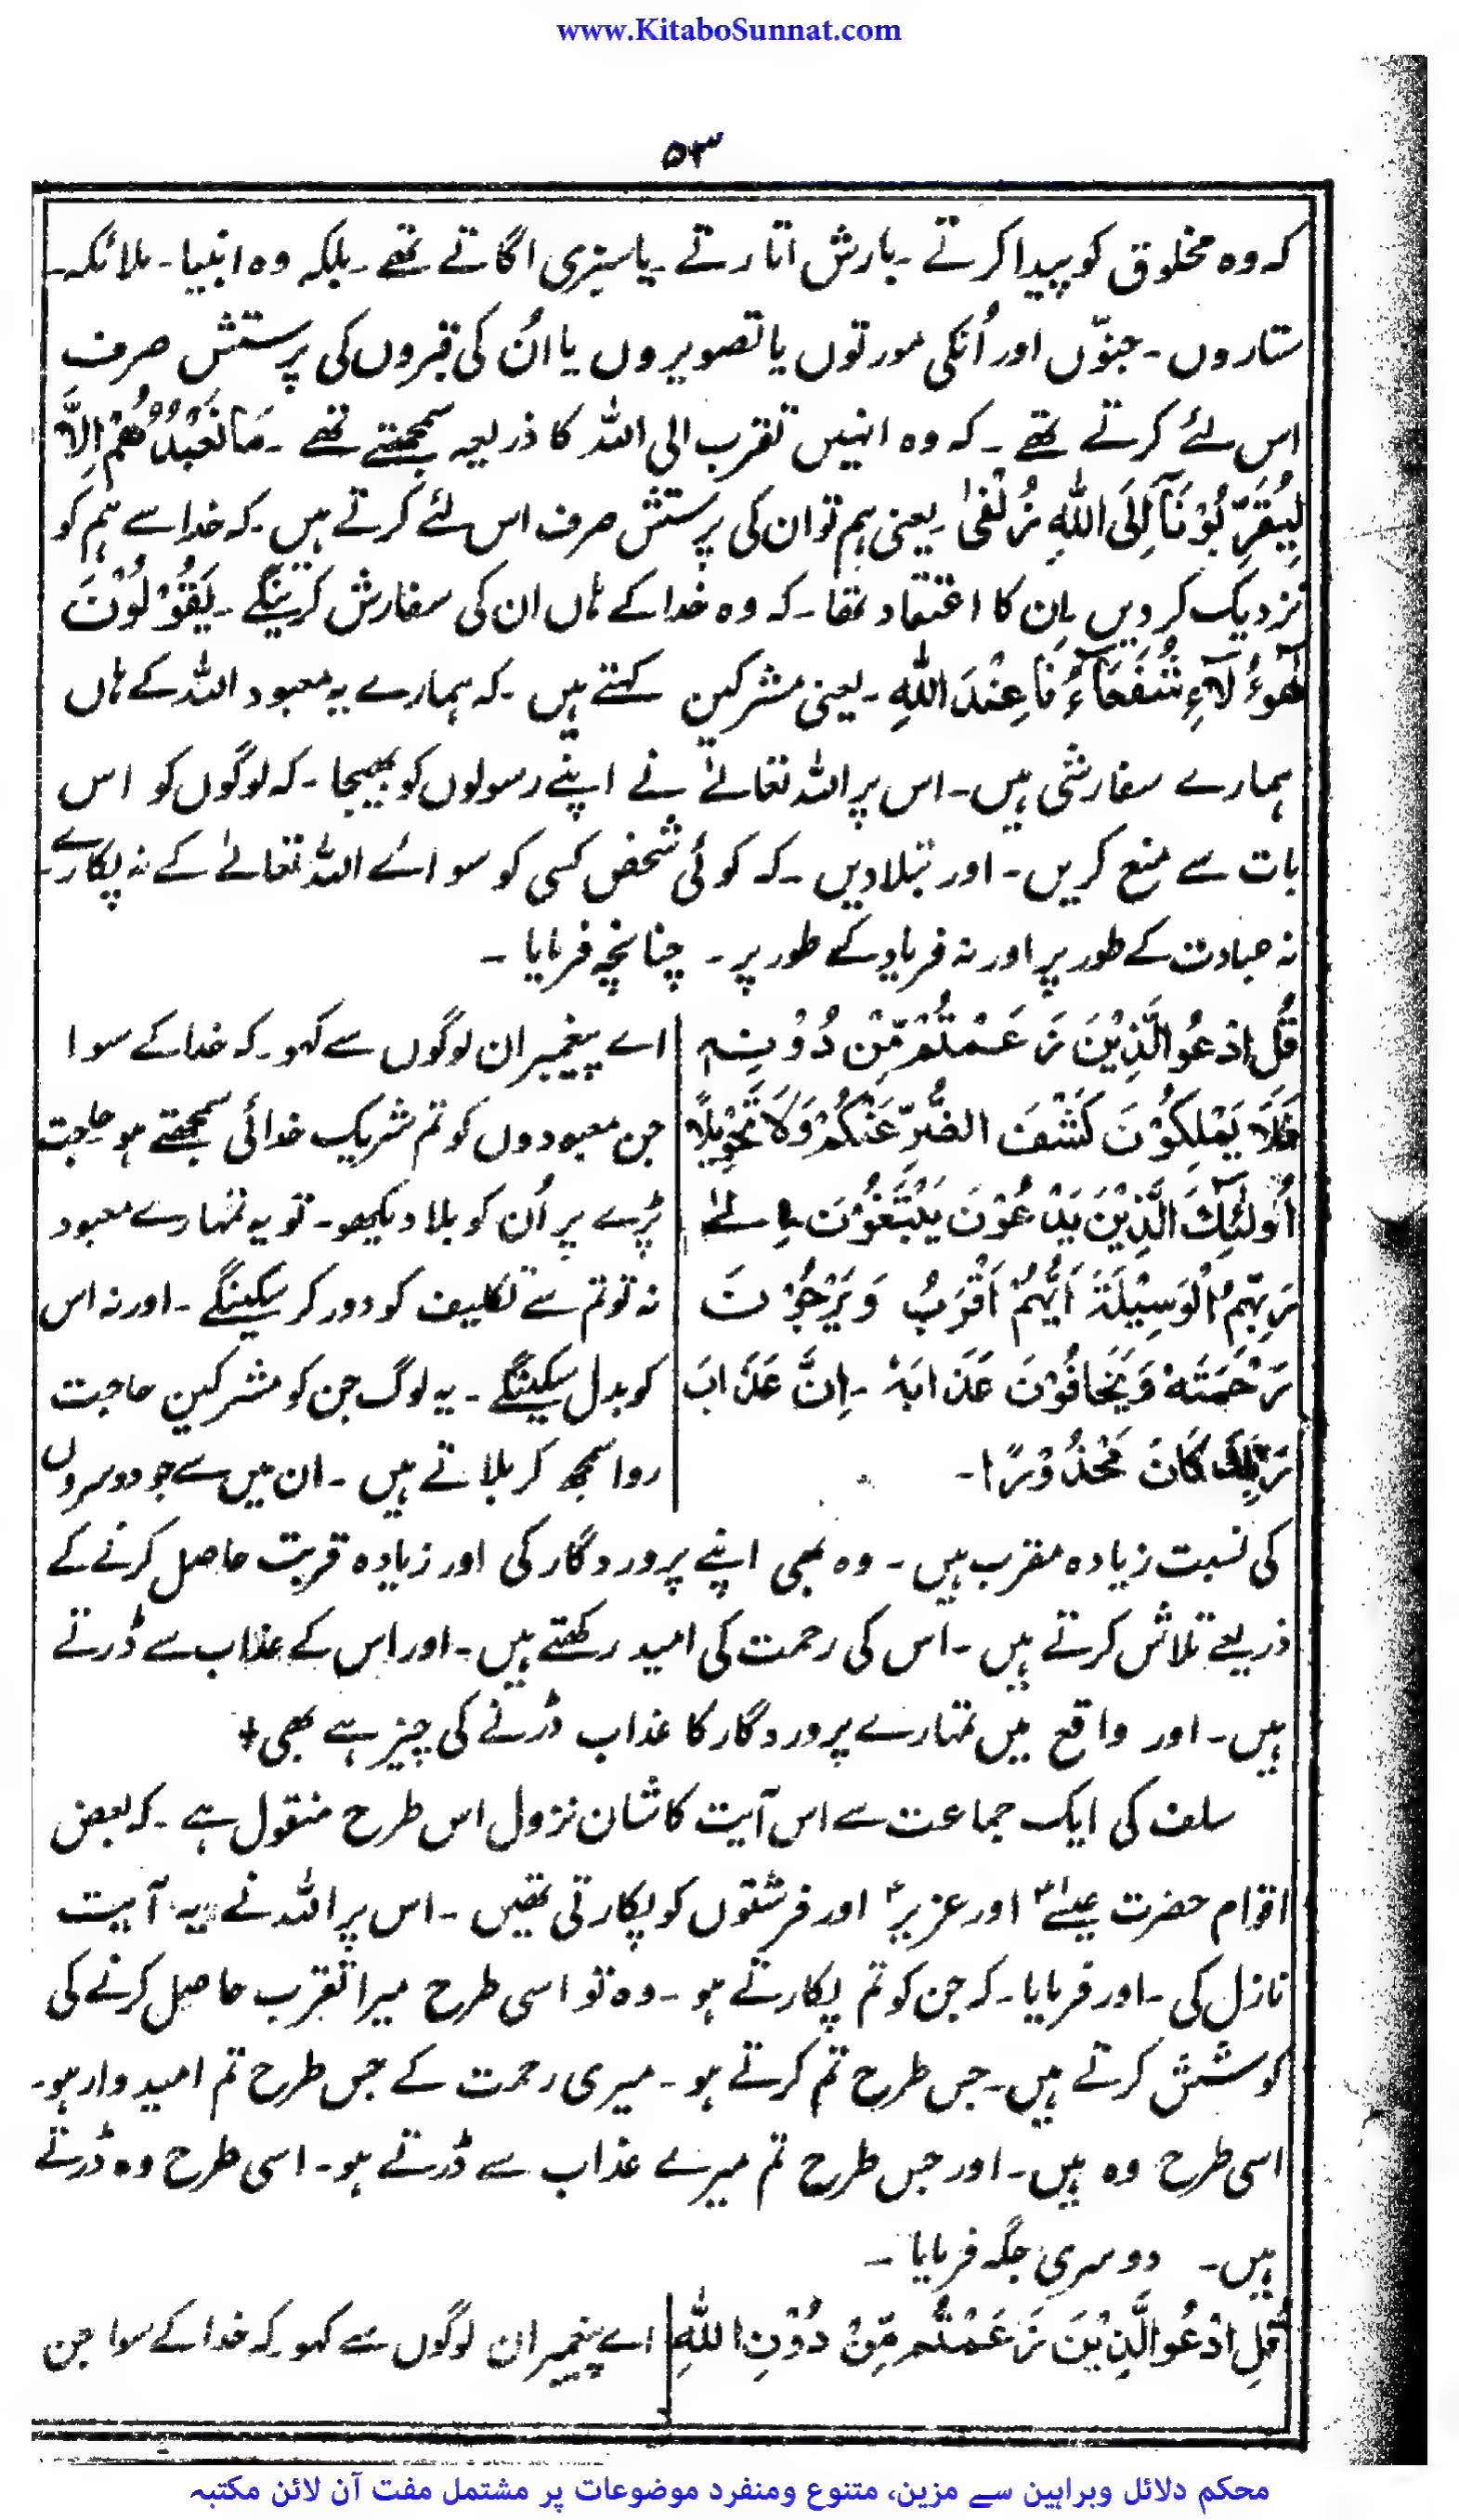 www.KitaboSunnat.com
۵۳
کہ وہ مخلوق کو پیدا کرتے ۔ بارش اتارتے ۔ یا سبزی اگاتے تھے ۔ بلکہ وہ انبیا ۔ ملائکہ ۔
ستاروں ۔ جنّوں اور اُنکی مورتوں یا تصویروں یا اُن کی قبروں کی پرستش صرف
اس لئے کرتے تھے ۔ کہ وہ انہیں تقرب الی اللہ کا ذریعہ سمجھتے تھے ۔ مَا نَعْبُدُ هُمْ اِلَّا
لِيُقَرِّ بُوْنَآ اِلَى اللّٰهِ زُلْفٰى یعنی ہم تو ان کی پرستش صرف اس لئے کرتے ہیں ۔ کہ خدا سے ہم کو
نزدیک کر دیں ان کا اعتقاد تھا ۔ کہ وہ خدا کے ہاں ان کی سفارش کرینگے ۔ يَقُوْلُوْنَ
هٰٓؤُلَآءِ شُفَعَآءُ نَا عِنْدَ اللّٰهِ ۔ یعنی مشرکین کہتے ہیں ۔ کہ ہمارے یہ معبود اللہ کے ہاں
ہمارے سفارشی ہیں ۔ اس پر اللہ تعالےٰ نے اپنے رسولوں کو بھیجا ۔ کہ لوگوں کو اس
بات سے منع کریں ۔ اور بتلا دیں ۔ کہ کوئی شخص کسی کو سوائے اللہ تعالےٰ کے نہ پکارے ۔
نہ عبادت کے طور پر اور نہ فریاد کے طور پر ۔ چنانچہ فرمایا ۔
قُلِ ادْعُوا الَّذِيْنَ زَ عَمْتُمْ مِّنْ دُوْنِهٖ
فَلَا يَمْلِكُوْنَ كَشْفَ الضُّرِّ عَنْكُمْ وَلَا تَحْوِيْلًا
اُولٰٓئِكَ الَّذِيْنَ يَدْ عُوْنَ يَبْتَغُوْنَ اِلٰے
رَبِّهِمُ الْوَسِيْلَةَ اَيُّهُمْ اَقْرَبُ وَيَرْجُوْنَ
رَحْمَتَهٗ وَيَخَافُوْنَ عَذَابَهٗ ۔ اِنَّ عَذَابَ
رَبِّكَ كَانَ مَحْذُوْرًا ۔
اے پیغمبر ان لوگوں سے کہو ۔ کہ خدا کے سوا
جن معبودوں کو تم شریک خدائی سمجھتے ہو حاجت
پڑے پر اُن کو بلا دیکھو ۔ تو یہ تمہارے معبود
نہ تو تم سے تکلیف کو دور کر سکینگے ۔ اور نہ اس
کو بدل سکینگے ۔ یہ لوگ جن کو مشرکین حاجت
روا سمجھ کر بلاتے ہیں ۔ ان میں سے جو دوسروں
کی نسبت زیادہ مقرب ہیں ۔ وہ بھی اپنے پروردگار کی اور زیادہ قربت حاصل کرنے کے
ذریعے تلاش کرتے ہیں ۔ اس کی رحمت کی امید رکھتے ہیں ۔ اور اس کے عذاب سے ڈرتے
ہیں ۔ اور واقع میں تمہارے پروردگار کا عذاب ڈرنے کی چیز ہے بھی +
سلف کی ایک جماعت سے اس آیت کا شان نزول اس طرح منقول ہے ۔ کہ بعض
اقوام حضرت عیسےٰؑ اور عزیرؑ اور فرشتوں کو پکارتی تھیں ۔ اس پر اللہ نے یہ آیت
نازل کی ۔ اور فرمایا ۔ کہ جن کو تم پکارتے ہو ۔ وہ تو اسی طرح میرا تقرب حاصل کرنے کی
کوشش کرتے ہیں ۔ جس طرح تم کرتے ہو ۔ میری رحمت کے جس طرح تم امیدوار ہو ۔
اسی طرح وہ ہیں ۔ اور جس طرح تم میرے عذاب سے ڈرتے ہو ۔ اسی طرح وہ ڈرتے
ہیں ۔ دوسری جگہ فرمایا ۔
قُلِ ادْعُوا الَّذِيْنَ زَ عَمْتُمْ مِّنْ دُوْنِ اللّٰهِ
اے پیغمبر ان لوگوں سے کہو کہ خدا کے سوا جن
محکم دلائل وبراہین سے مزین، متنوع ومنفرد موضوعات پر مشتمل مفت آن لائن مکتبہ